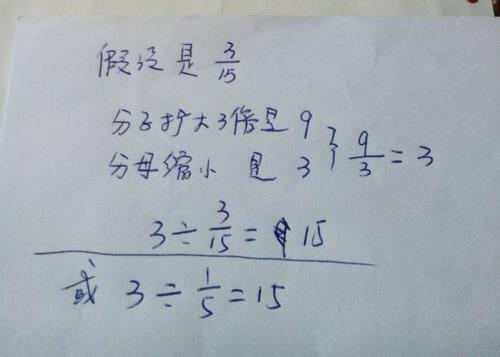 假设是 3/15
分子扩大3倍是 9
分母缩小 是 3 } 9/3 = 3
3 ÷ 3/15 = 15
或 3 ÷ 1/5 = 15